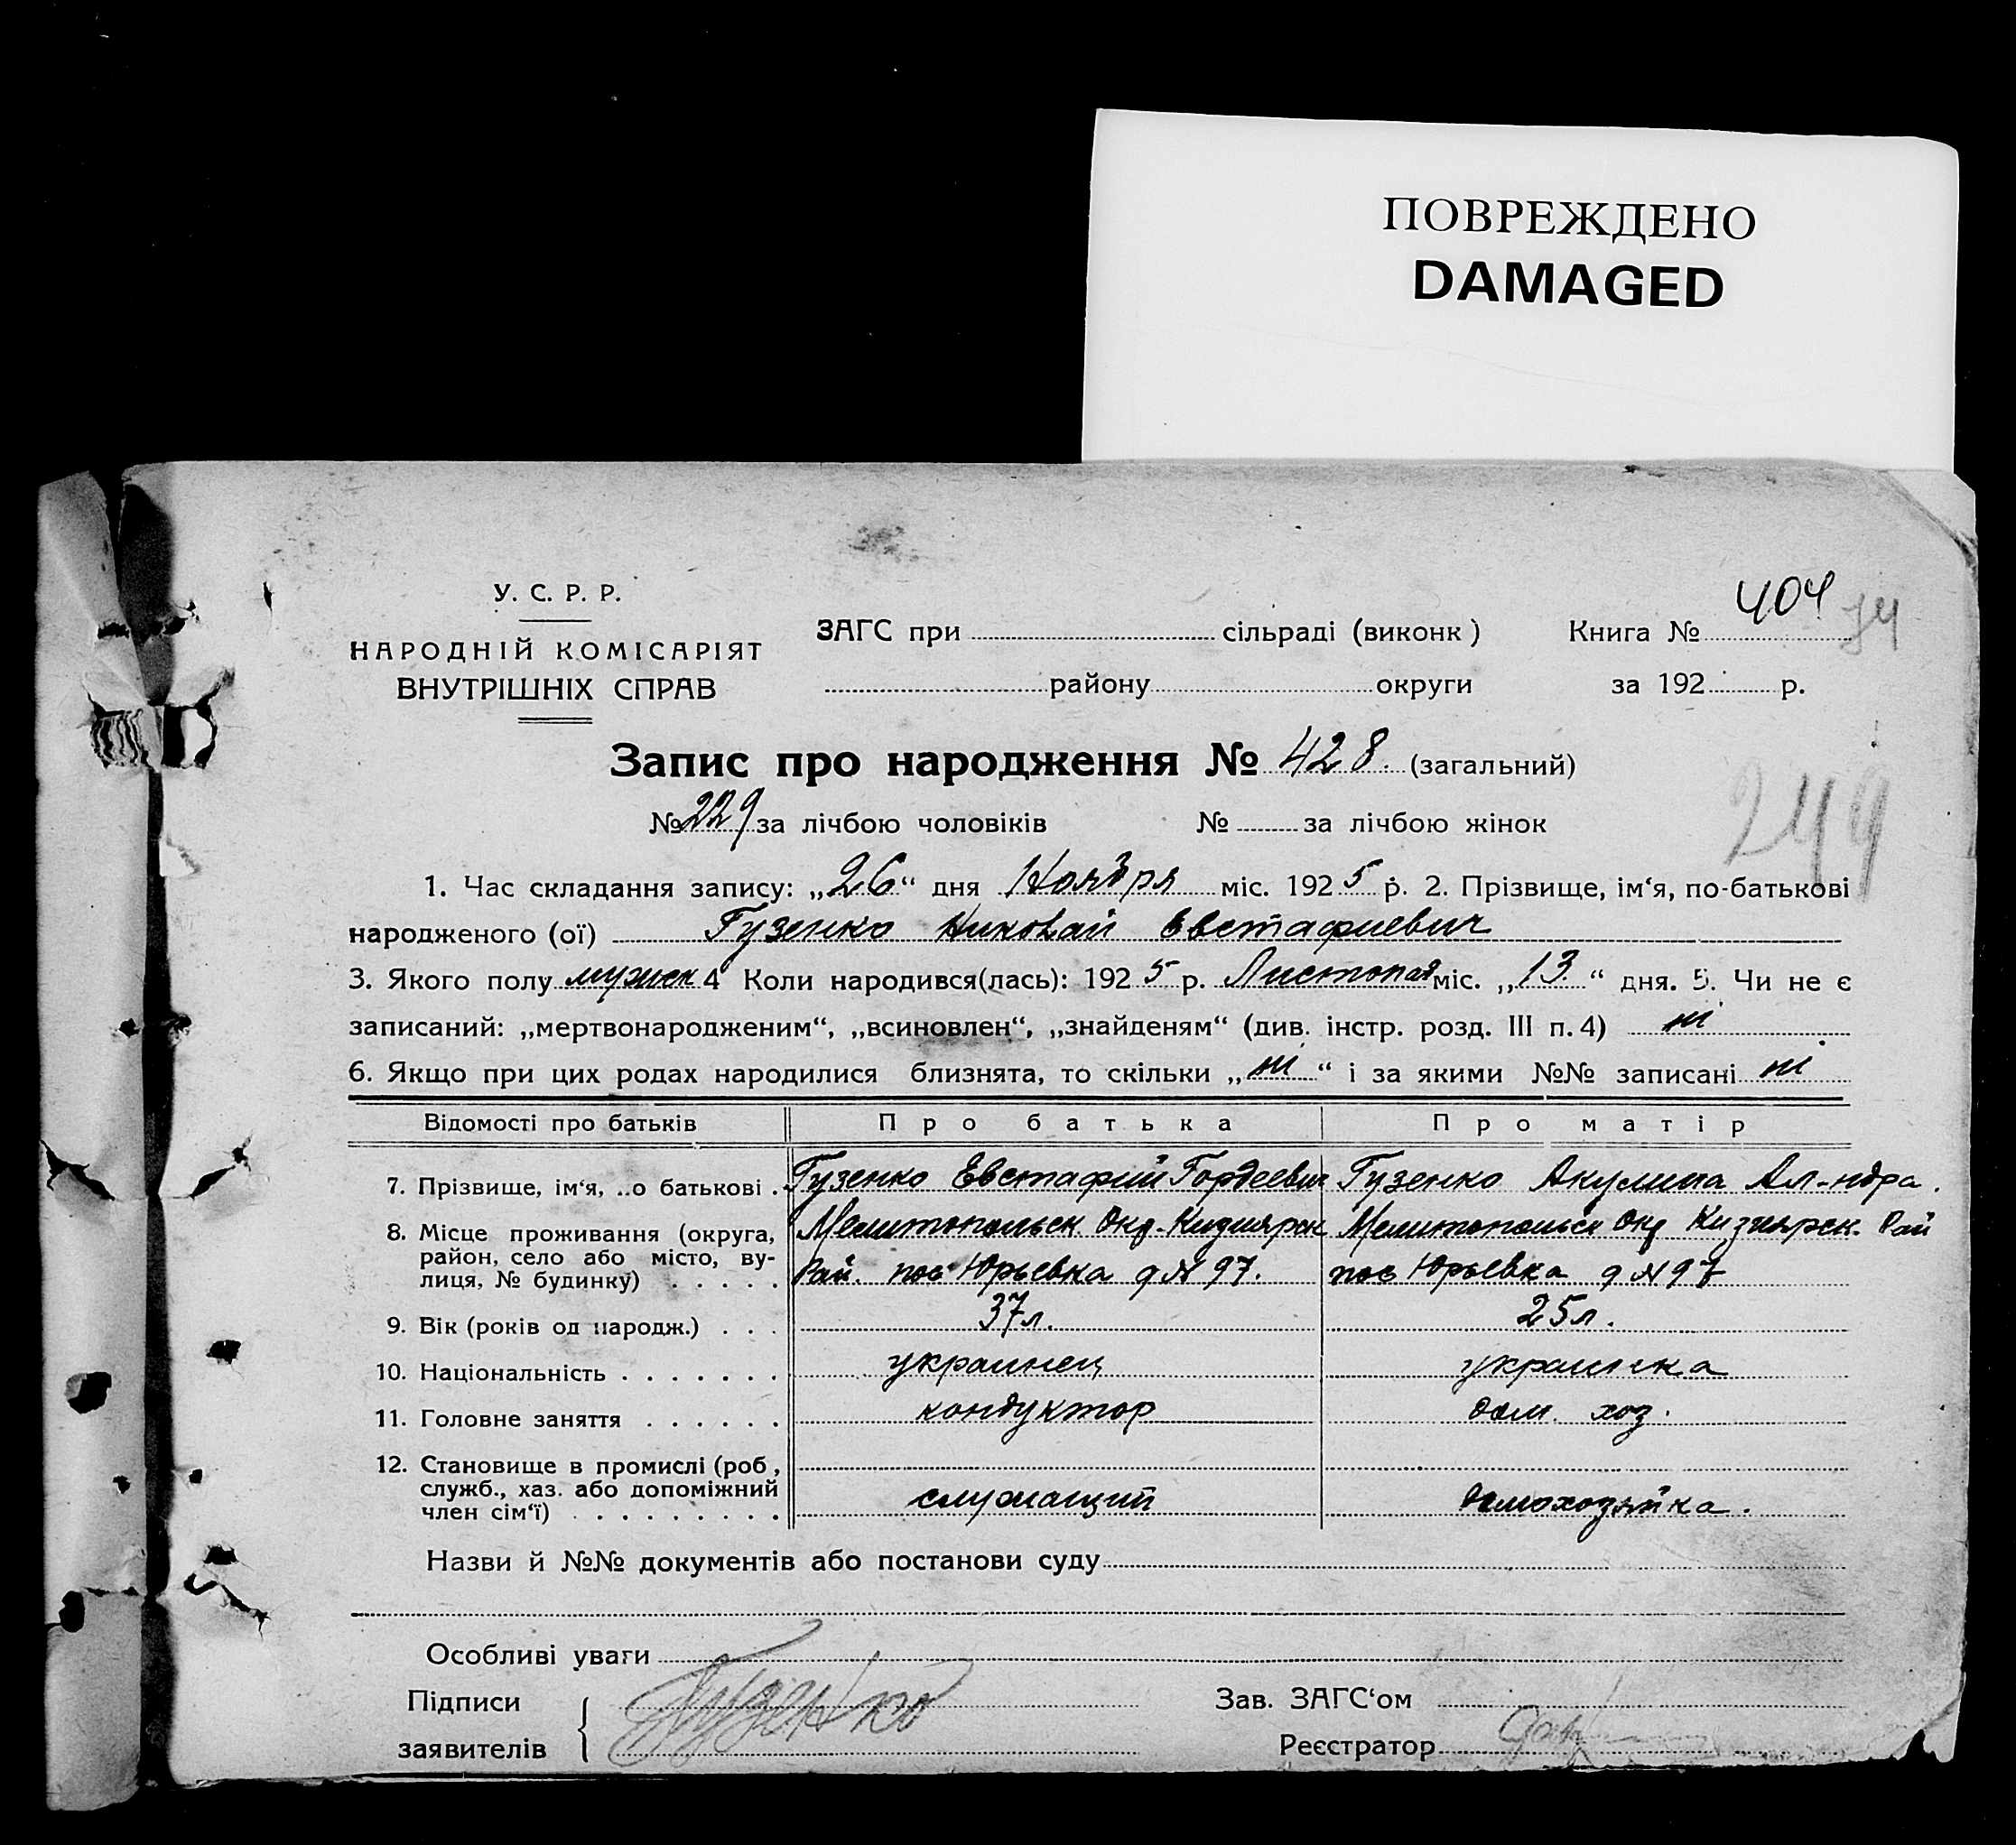 ПОВРЕЖДЕНО
DAMAGED
У. С. Р. Р.
НАРОДНІЙ КОМІСАРІЯТ
ВНУТРІШНІХ СПРАВ
ЗАГС при сільраді (виконк)
Книга № 404 74
району округи за 192 р.
Запис про народження № 428. (загальний)
№ 229 за лічбою чоловіків № за лічбою жінок
249
1. Час складання запису: „26“ дня Ноября міс. 1925 р. 2. Прізвище, ім‘я, по-батькові
народженого (ої) Гузенко Николай Евстафиевич
3. Якого полу мужск 4 Коли народився(лась): 1925 р. Листопад міс. „13.“ дня. 5. Чи не є
записаний: „мертвонародженим“, „всиновлен“, „знайденям“ (див. інстр. розд. III п. 4) ні
6. Якщо при цих родах народилися близнята, то скільки „ні“ і за якими №№ записані ні
Відомості про батьків Про батька Про матір
7. Прізвище, ім‘я, ..о батькові . Гузенко Евстафий Гордеевич Гузенко Акулина Ал-ндра.
8. Місце проживання (округа, Мелитопольск Окр. Кизиярск Мелитопольск Окр Кизиярск. Рай
район, село або місто, ву-
лиця, № будинку) . . . . . Рай. пос Юрьевка д № 97. пос Юрьевка д № 97
9. Вік (років од народж.) . . . 37 л. 25 л.
10. Національність . . . . . . . украинец украинка
11. Головне заняття . . . . . . кондуктор дом. хоз.
12. Становище в промислі (роб.,
служб., хаз. або допоміжний
член сім‘ї) . . . . . . . . . служащий домохозяйка.
Назви й №№ документів або постанови суду
Особливі уваги
Підписи Гузенко Зав. ЗАГС‘ом
заявителів Реєстратор